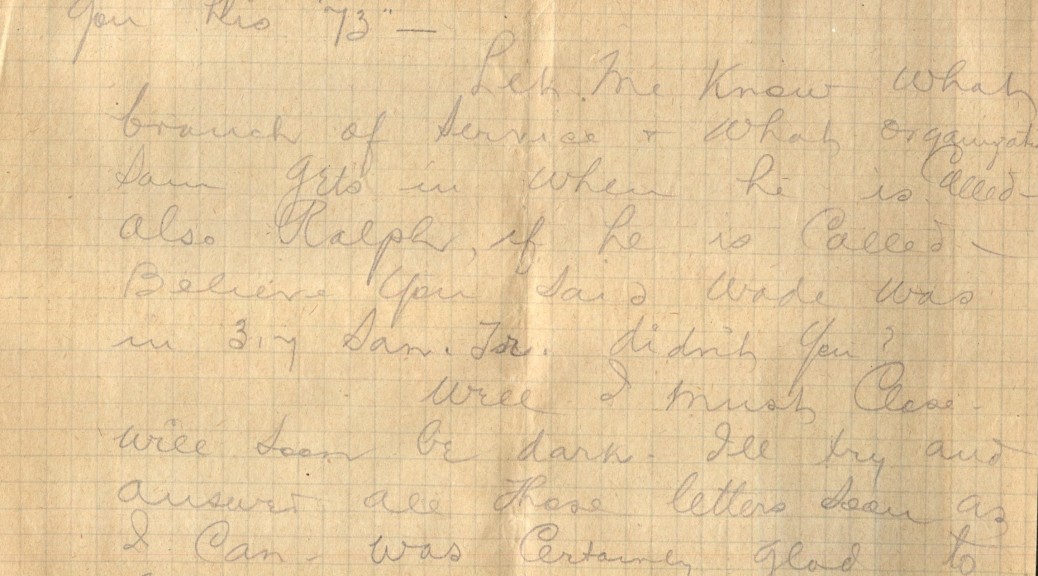 you this "73" —
Let Me Know what
branch of Service & what organizat
Sam gets in when he is called—
also Ralph, if he is Called —
Believe you said Wade was
in 317 San. Tr. didn't you?
Well I must Close.
will soon be dark. I'll try and
answer all those letters soon as
I Can. was Certainly glad to